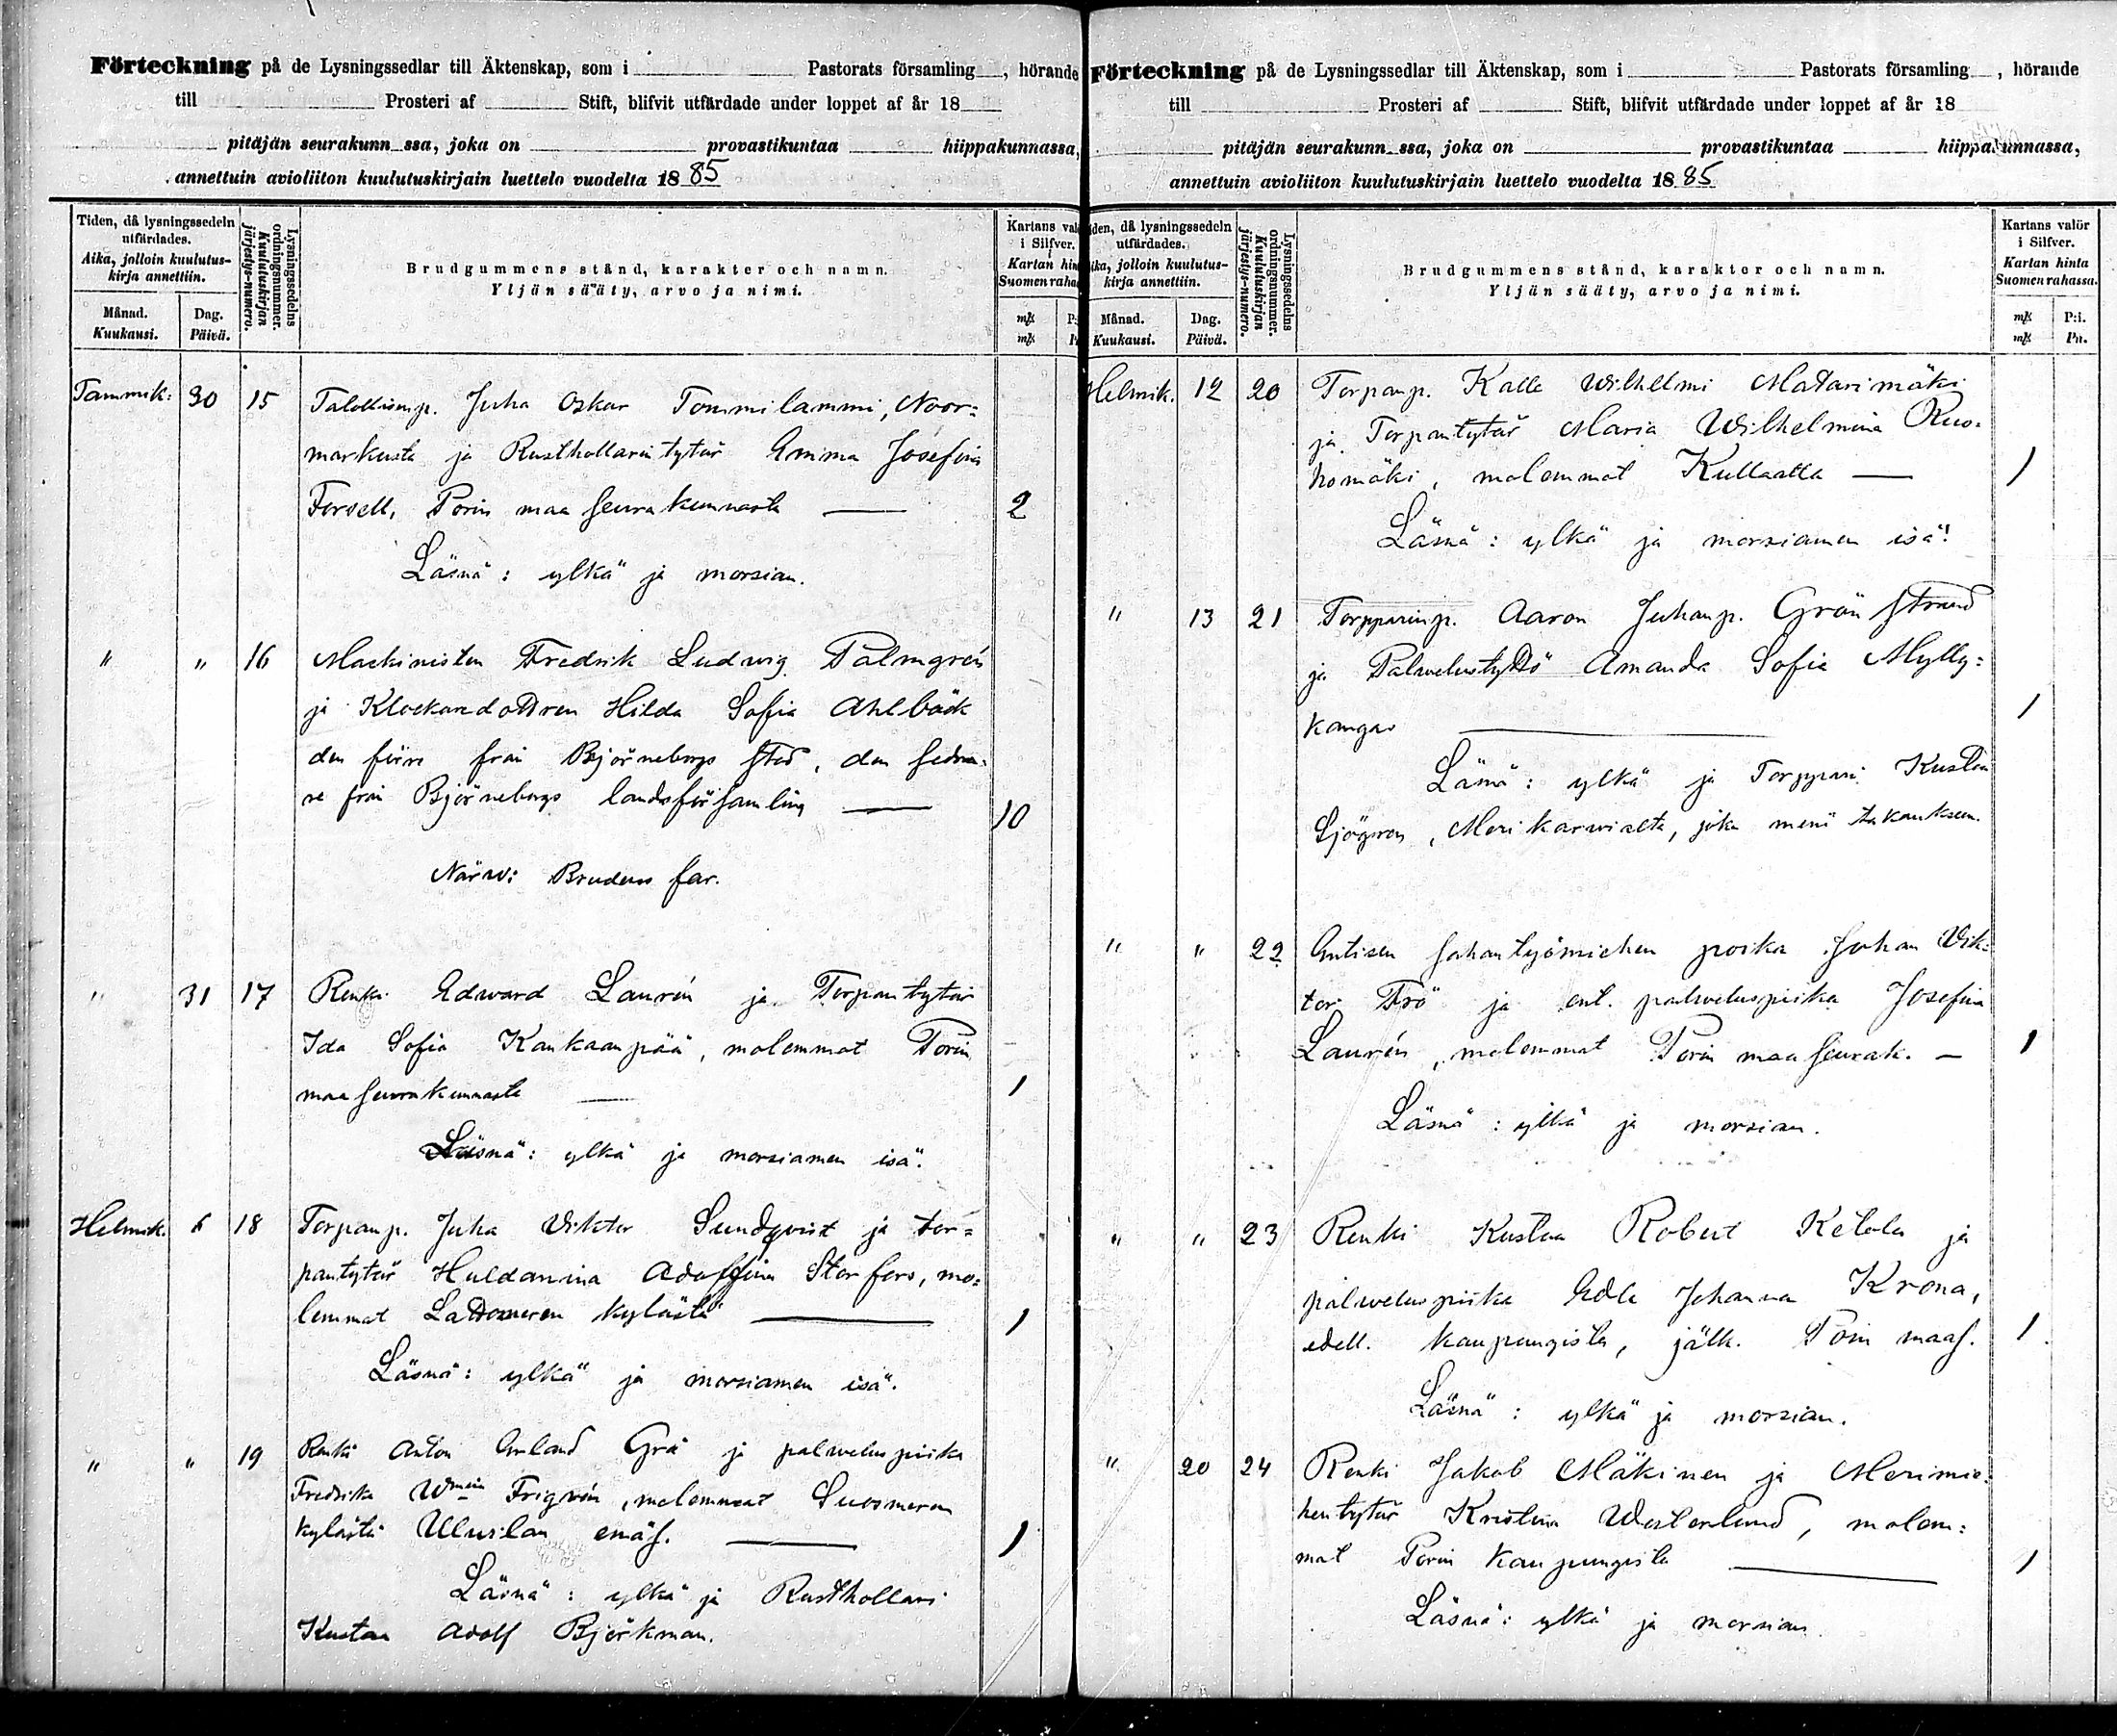 Förteckning på de Lysningssedlar till Äktenskap, som i Pastorats församling , hörande
till Prosteri af Stift, blifvit utfärdade under loppet af år 18
pitäjän seurakunn ssa, joka on provastikuntaa hiippakunnassa,
annettuin avioliiton kuulutuskirjain luettelo vuodelta 1885
Tiden, då lysningssedeln
utfärdades.
Aika, jolloin kuulutus-
kirja annettiin.
Månad.
Kuukausi.
Dag.
Päivä.
Lysningssedelns
ordningsnummer.
Kuulutuskirjan
järjestys-numero.
Brudgummens stånd, karakter och namn.
Yljän sääty, arvo ja nimi.
Kartans val
i Silfver.
Kartan hin
Suomen raha
mk P:
mk P
Tammik: 30 15 Juha Oskar Tommilammi, Noor=
markusta ja Rusthollarin tytär Amma Josefina
Forsell, Porin maa seurakunnasta — 2
Läsnä: ylkä ja morsian.
" " 16 Maskinisten Fredrik Ludwig Palmgrén
ja Klockaredottren Hilda Sofia Ahlbäck
den förre från Björneborgs stad, den sedna=
re från Björneborgs landsförsamling — 10
Närv: Brudens far.
" 31 17 Renki Edward Laurén ja Torpantytär
Ida Sofia Kankaanpää, molemmat Porin
maa seurakunnasta — 1
Läsnä: ylkä ja morsiamen isä.
Helmik. 6 18 Torpanp. Juha Viktor Sundqvist ja tor=
pantytär Huldamina Adolfina Storfors, mo=
lemmat Lattomeren kylästä — 1
Läsnä: ylkä ja morsiamen isä.
" " 19 Renki Anton Erland Grå ja palveluspiika
Fredrika Wmina Frigrén, molemmat Suosmeren
kylästä Ulvilan emäs. — 1
Läsnä: ylkä ja Rusthollari
Kustaa Adolf Björkman.
Förteckning på de Lysningssedlar till Äktenskap, som i Pastorats församling , hörande
till Prosteri af Stift, blifvit utfärdade under loppet af år 18
pitäjän seurakunn ssa, joka on provastikuntaa hiippakunnassa,
annettuin avioliiton kuulutuskirjain luettelo vuodelta 1885
den, då lysningssedeln
utfärdades.
ika, jolloin kuulutus-
kirja annettiin.
Månad.
Kuukausi.
Dag.
Päivä.
Lysningssedelns
ordningsnummer.
Kuulutuskirjan
järjestys-numero.
Brudgummens stånd, karakter och namn.
Yljän sääty, arvo ja nimi.
Kartans valör
i Silfver.
Kartan hinta
Suomen rahassa.
mk P:i.
mk Pn.
Helmik. 12 20 Torpanp. Kalle Wilhelmi Matarimäki
ja Torpantytär Maria Wilhelmina Ruo=
homäki, molemmat Kullaalta — 1
Läsnä: ylkä ja morsiamen isä.
" 13 21 Torpparinp. Aaron Juhanp. Grönstrand
ja Palvelustyttö Amanda Sofia Mylly=
kangas — 1
Läsnä: ylkä ja Torppari Kustaa
Sjögren, Merikarvialta, joka meni takaukseen.
" " 22 Entisen sahantyömiehen poika Johan Vik=
tor Frö ja ent. palveluspiika Josefina
Laurén, molemmat Porin maaseurak. — 1
Läsnä: ylkä ja morsian.
" " 23 Renki Kustaa Robert Ketola ja
palveluspiika Edla Johanna Krona,
edell. kaupungista, jälk. Porin maas. 1
Läsnä: ylkä ja morsian.
" 20 24 Renki Jakob Mäkinen ja Merimie=
hentytär Kristina Westerlund, molem=
mat Porin kaupungista — 1
Läsnä: ylkä ja morsian